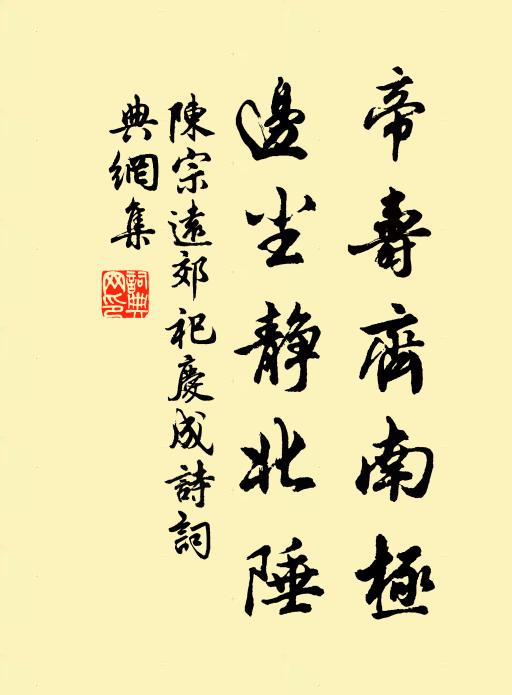 帝壽齊南極
邊尘靜北陲
陳宗遠郊祀慶成詩詞
典網集
詞典
网印